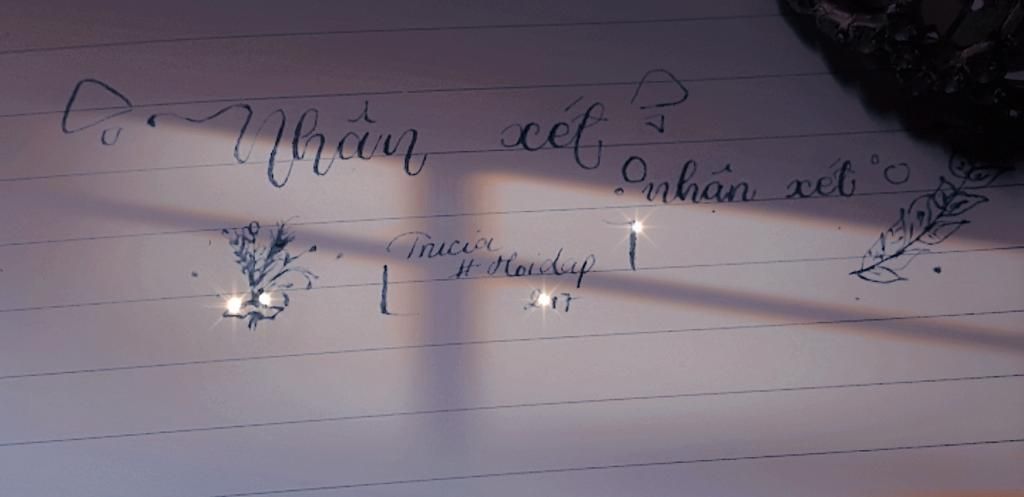 Nhân xét
nhân xét
Trucia
# Hoidap
247